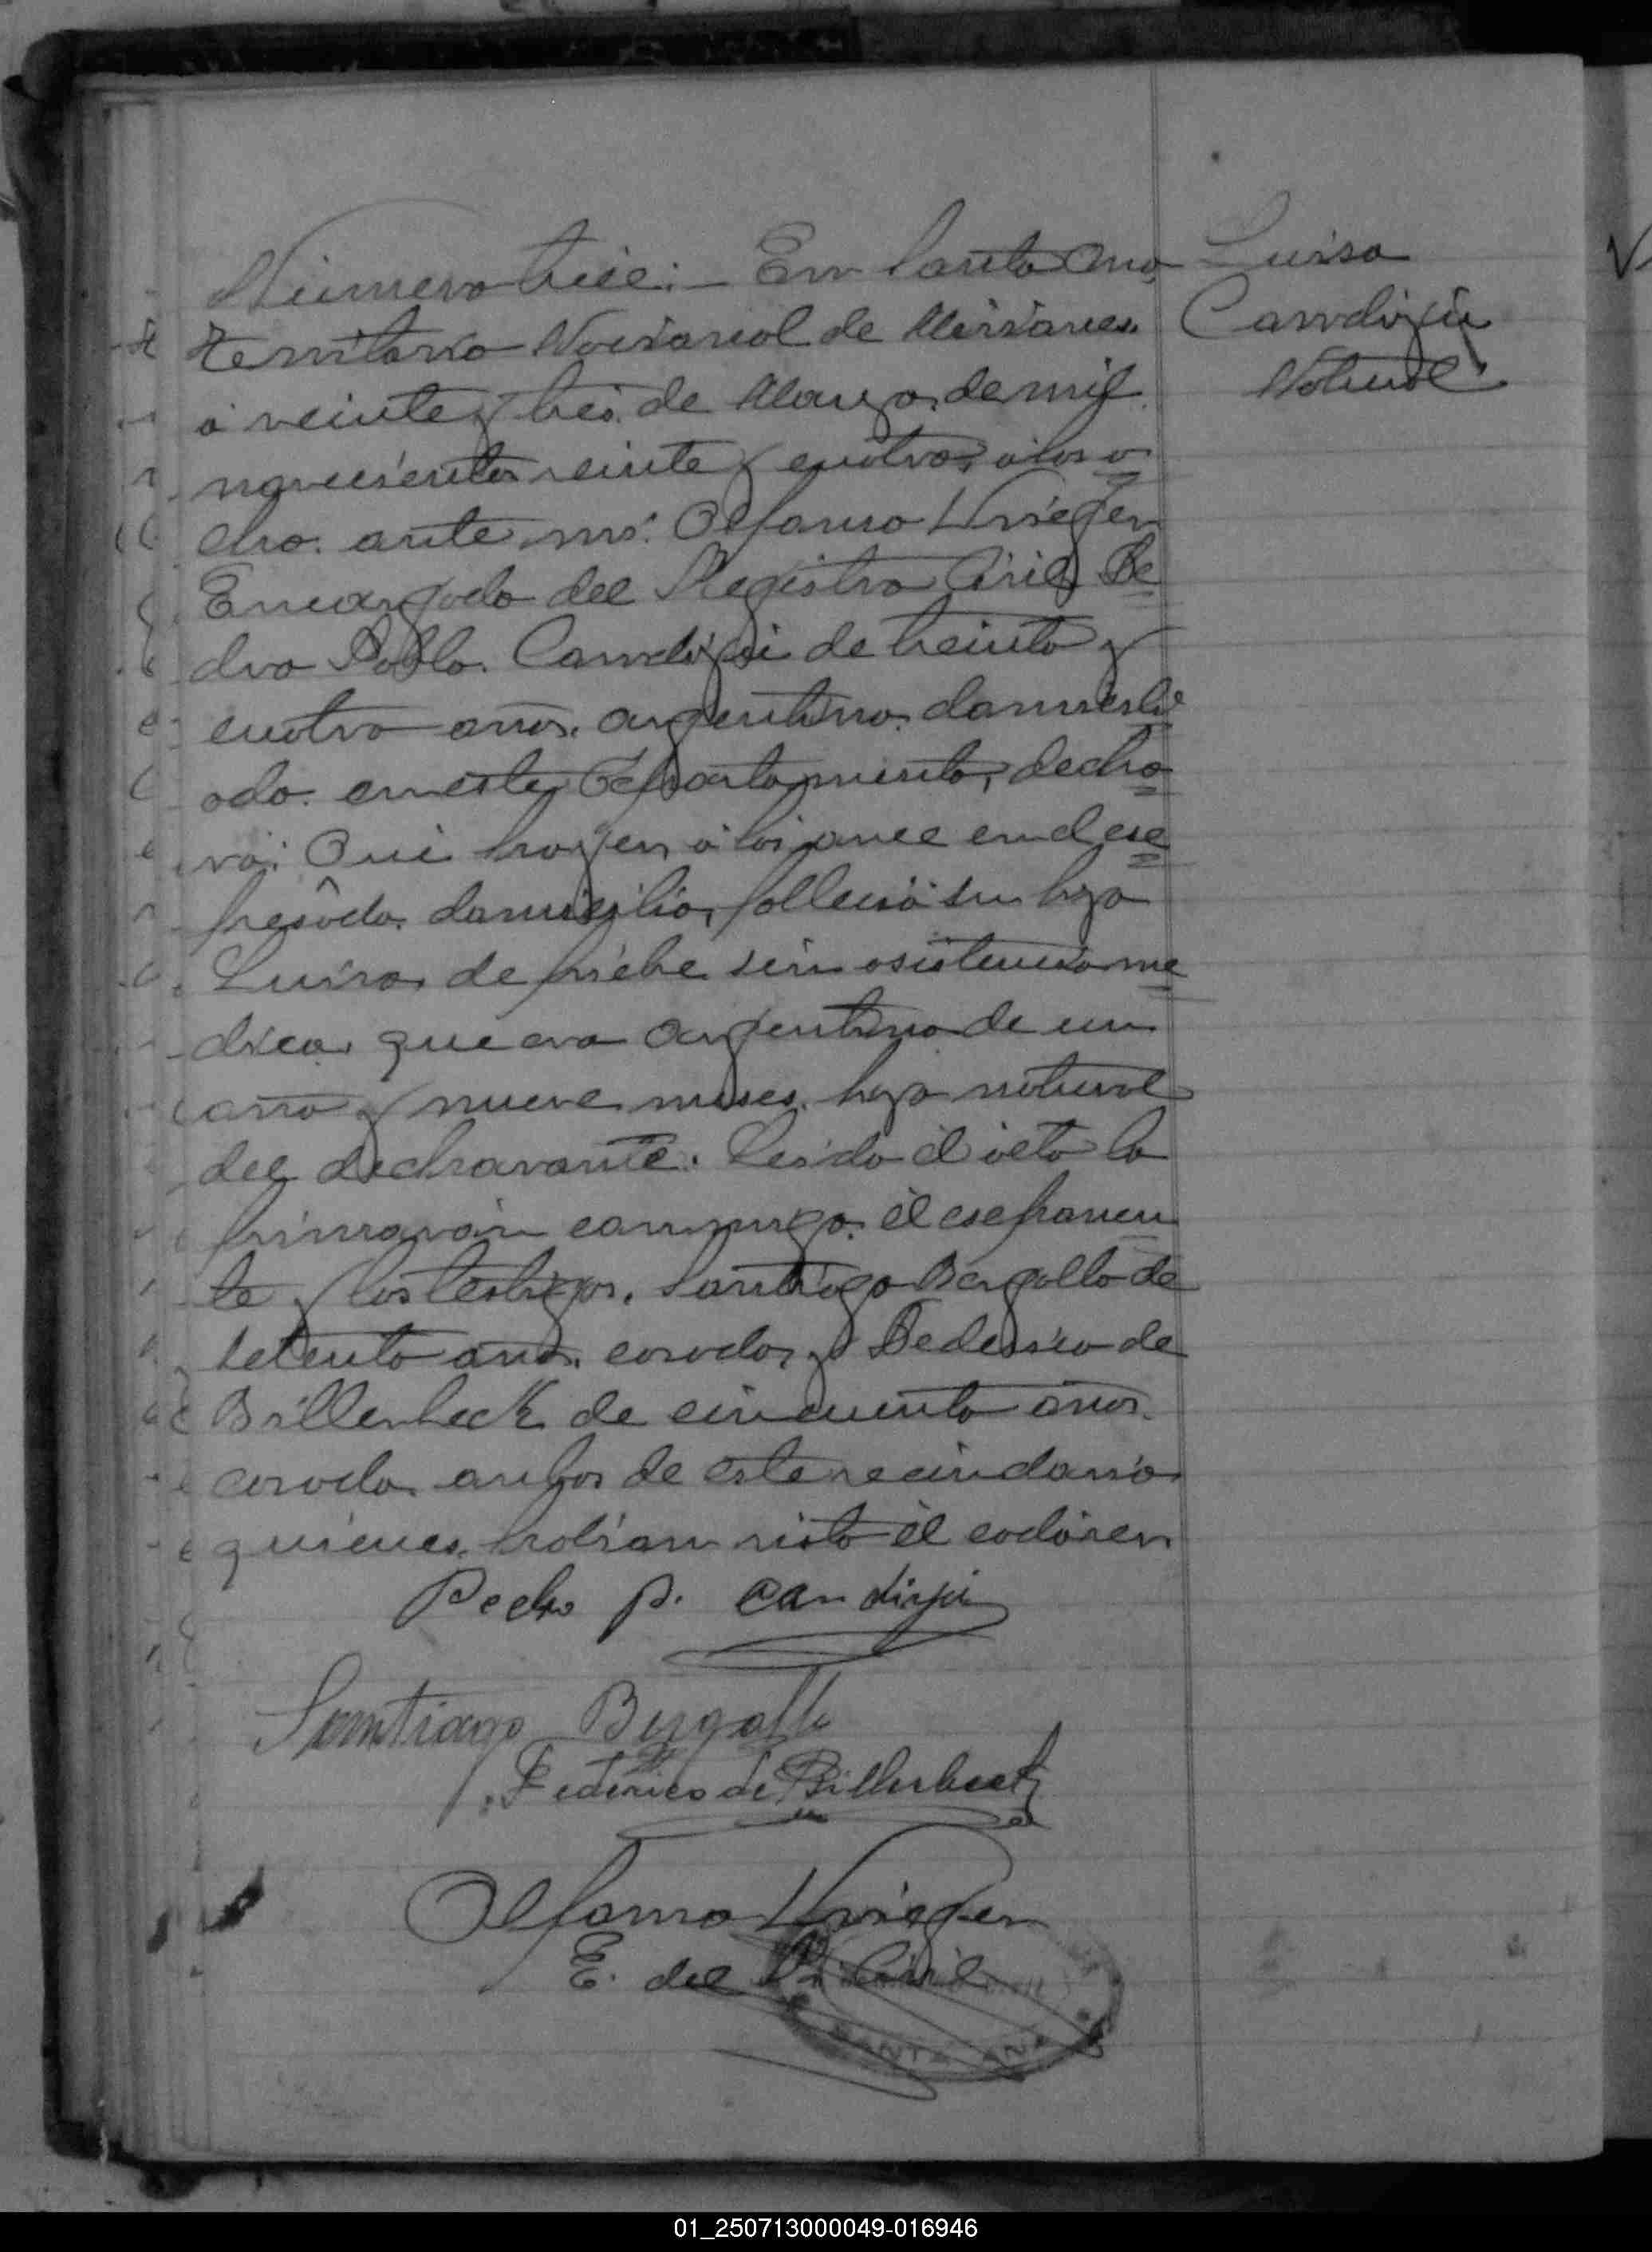 Número trece:— En Santa Ana
Territorio Nacional de Misiones
á veinte y tres de Marzo de mil
novecientos veinte y cuatro, á los o
cho. ante mí: Alfonso Krieger
Encargado del Registro Civil, Pe
dro Pablo Candizii de treinta y
cuatro años. argentino. domicili
ado en este Departamento, decla
ró: Que hoy en á las once en el ex
presado domicilio, falleció su hija
Luisa de fiebre sin asistencia me
dica que era argentina de un
año y nueve meses. hija natural
del declarante. Leido el acta la
firmarón conmigo. él exponen
te y los testigos. Santiago Bergallo de
setenta años. casado, y Federico de
Billerbeck de cincuenta años.
casado. anbos de este vecindario
quienes habian visto él cadáver
Pedro P. Candizii
Santiago Bergallo
Federico de Billerbeck
Alfonso Krieger
E. del R. Civil
SANTA ANA
Luisa
Candizii
Natural
01_250713000049-016946